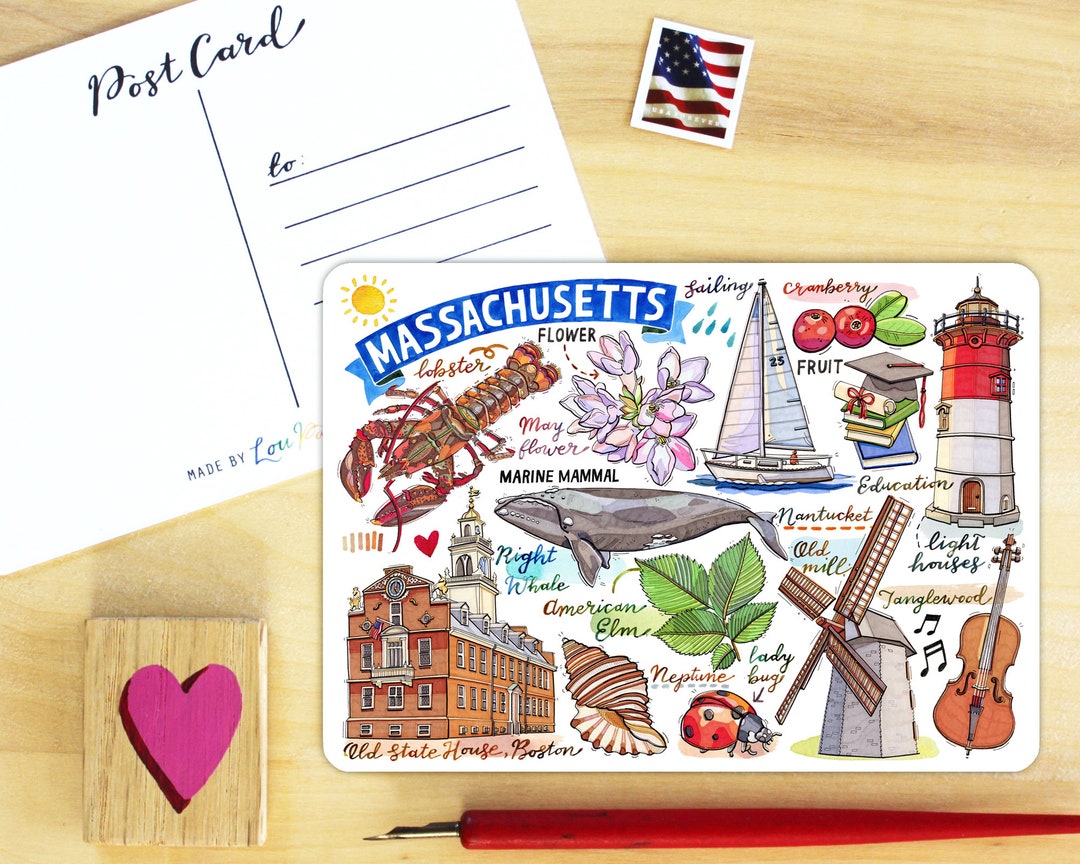 Post Card
to:
MADE BY Lou
USA FOREVER
MASSACHUSETTS
Sailing
Cranberry
FLOWER
lobster
25
FRUIT
May
flower
MARINE MAMMAL
Education
Nantucket
Right
Whale
Old
mill
light
houses
American
Elm
Tanglewood
lady
bug
Neptune
Old State House, Boston